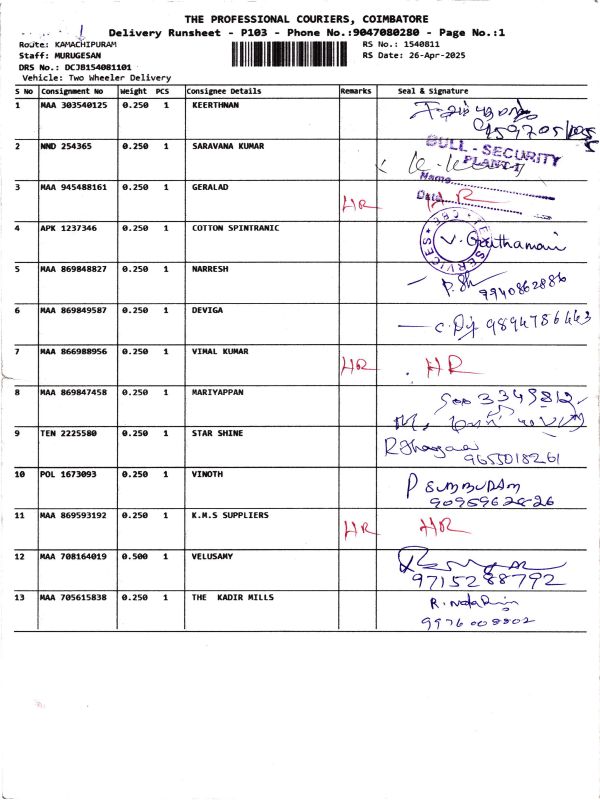 THE PROFESSIONAL COURIERS, COIMBATORE
Delivery Runsheet - P103 - Phone No.:9047080280 - Page No.:1
Route: KAMACHIPURAM RS No.: 1540811
Staff: MURUGESAN RS Date: 26-Apr-2025
DRS No.: DCJB154081101
Vehicle: Two Wheeler Delivery
S No Consignment No Weight PCS Consignee Details Remarks Seal & Signature
1 MAA 303540125 0.250 1 KEERTHNAN
2 NND 254365 0.250 1 SARAVANA KUMAR
BULL - SECURITY
PLANT-1
Name
3 MAA 945488161 0.250 1 GERALAD HR HR
Date
4 APK 1237346 0.250 1 COTTON SPINTRANIC V. Geethamani
SERVICES
5 MAA 869848827 0.250 1 NARRESH
9940862886
6 MAA 869849587 0.250 1 DEVIGA 9894786443
7 MAA 866988956 0.250 1 VIMAL KUMAR HR HR
8 MAA 869847458 0.250 1 MARIYAPPAN
9 TEN 2225580 0.250 1 STAR SHINE
9655018261
10 POL 1673093 0.250 1 VINOTH
11 MAA 869593192 0.250 1 K.M.S SUPPLIERS HR HR
12 MAA 708164019 0.500 1 VELUSAMY
9715288792
13 MAA 705615838 0.250 1 THE KADIR MILLS
9976008802